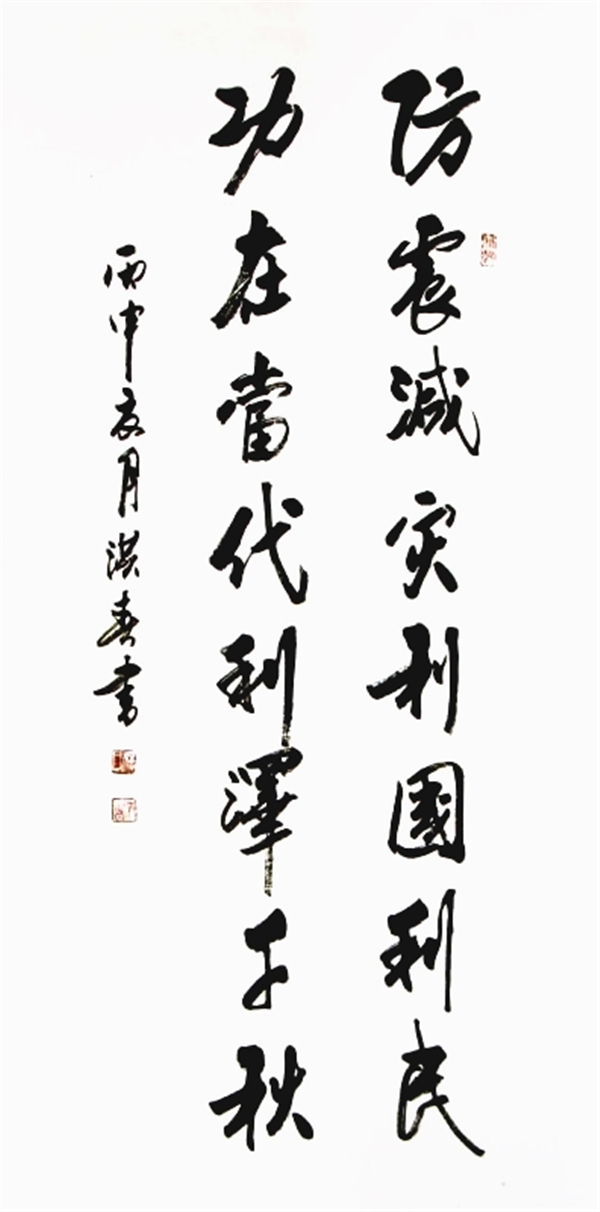 防震減灾利國利民
功在當代利澤千秋
丙申亥月洪春書